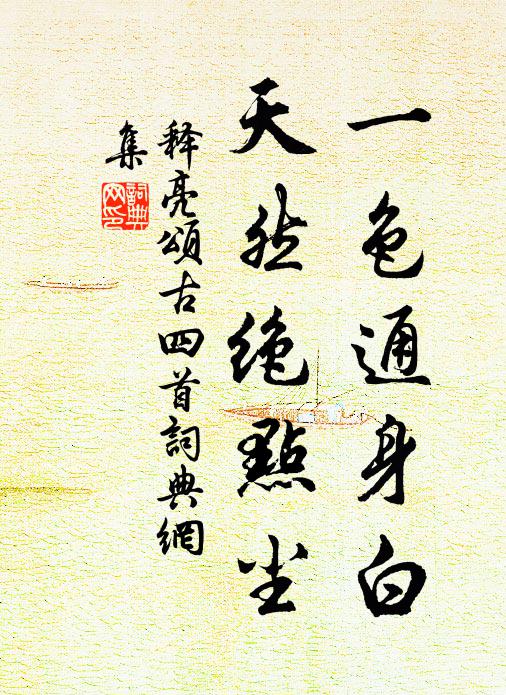 一色通身白
天然绝點尘
释亮頌古四首詞典網
集
詞典
网印